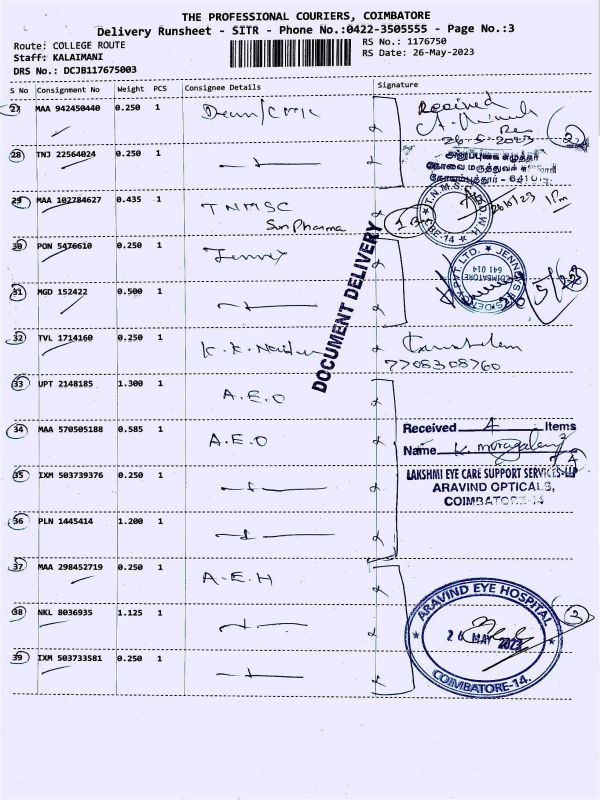 THE PROFESSIONAL COURIERS, COIMBATORE
Delivery Runsheet - SITR - Phone No.:0422-3505555 - Page No.:3
Route: COLLEGE ROUTE
Staff: KALAIMANI
DRS No.: DCJB117675003
RS No.: 1176750
RS Date: 26-May-2023
S No Consignment No Weight PCS Consignee Details Signature
27 MAA 942450440 0.250 1 Dean/CMK Received
26-5-2023
28 TNJ 22564024 0.250 1
கோவை மருத்துவக்
கோயம்புத்தூர் - 641
29 MAA 102784627 0.435 1 TNMSC
Sun Pharma
1 Pm
DOCUMENT DELIVERY
30 PON 5476610 0.250 1
PVT. LTD. JENNEYS
COIMBATORE
641 014
31 MGD 152422 0.500 1
32 TVL 1714160 0.250 1 K.K.
7708308760
33 UPT 2148185 1.300 1 A.E.O
34 MAA 570505188 0.585 1 A.E.O
Received 4 Items
Name K.
LAKSHMI EYE CARE SUPPORT SERVICES-LLP
ARAVIND OPTICALS,
COIMBATORE-14
35 IXM 503739376 0.250 1
36 PLN 1445414 1.200 1
37 MAA 298452719 0.250 1 A.E.H
38 NKL 8036935 1.125 1
ARAVIND EYE HOSPITAL
26 MAY 2023
COIMBATORE-14.
3
39 IXM 503733581 0.250 1